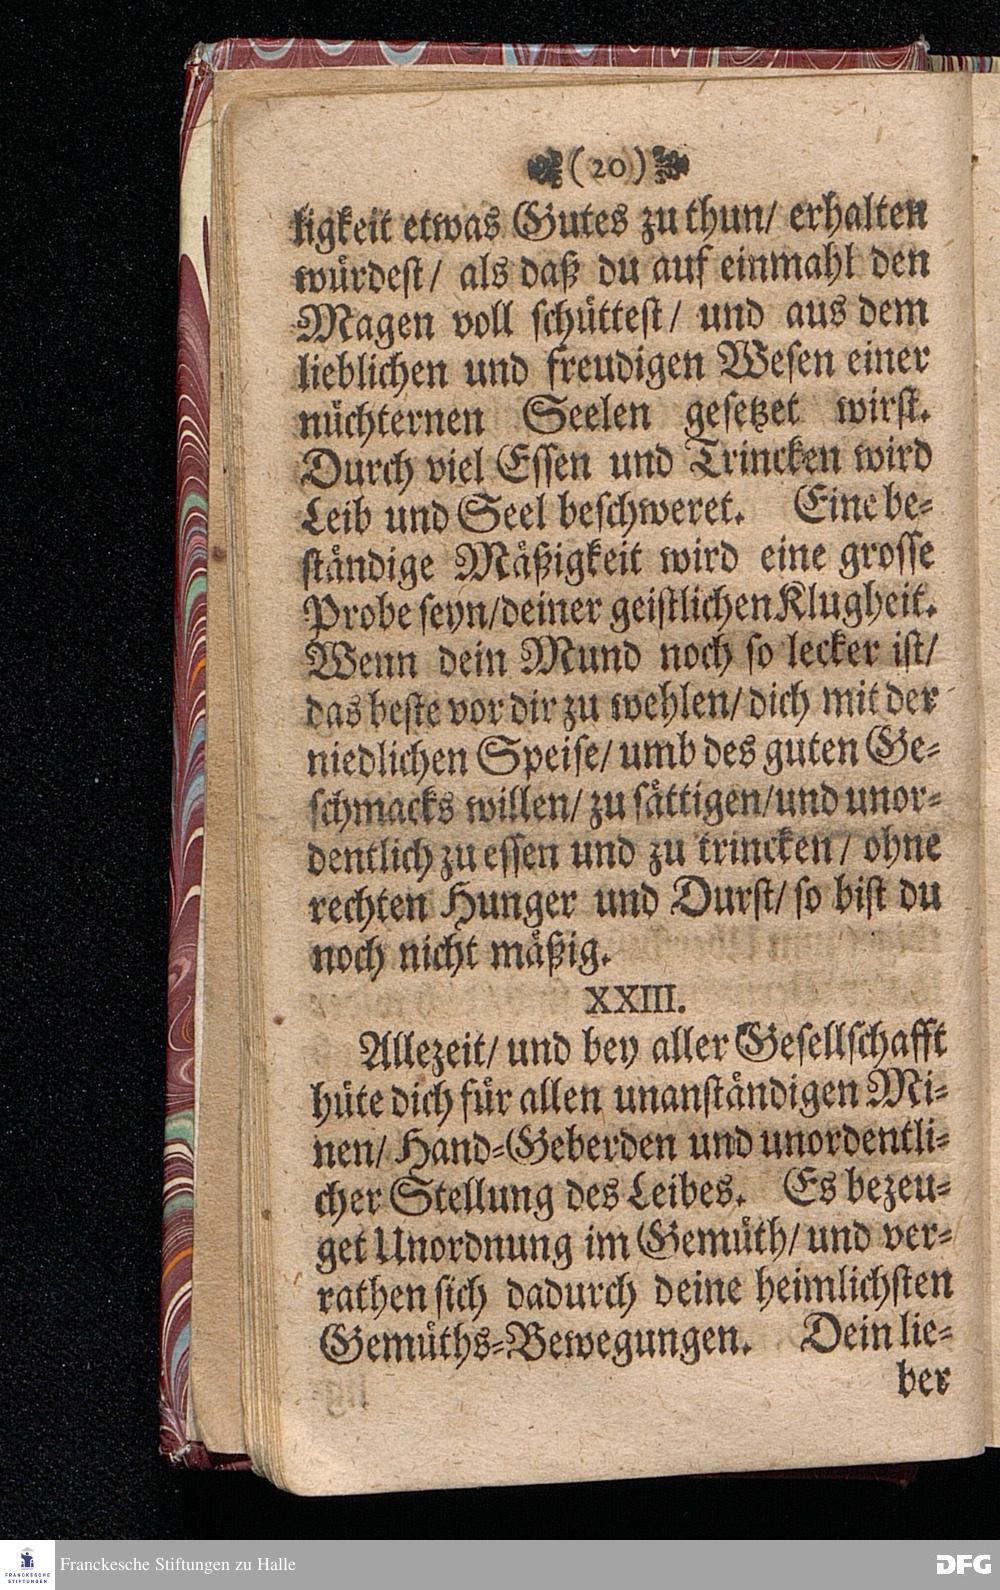 (20)
ligkeit etwas Gutes zu thun/ erhalten
würdest/ als daß du auf einmahl den
Magen voll schüttest/ und aus dem
lieblichen und freudigen Wesen einer
nüchternen Seelen gesetzet wirst.
Durch viel Essen und Trincken wird
Leib und Seel beschweret. Eine be-
ständige Mäßigkeit wird eine grosse
Probe seyn/deiner geistlichen Klugheit.
Wenn dein Mund noch so lecker ist/
das beste vor dir zu wehlen/ dich mit der
niedlichen Speise/ umb des guten Ge-
schmacks willen/ zu sättigen/und unor-
dentlich zu essen und zu trincken/ ohne
rechten Hunger und Durst/ so bist du
noch nicht mäßig.
XXIII.
Allezeit/ und bey aller Gesellschafft
hüte dich für allen unanständigen Mi-
nen/ Hand-Geberden und unordentli-
cher Stellung des Leibes. Es bezeu-
get Unordnung im Gemüth/ und ver-
rathen sich dadurch deine heimlichsten
Gemüths-Bewegungen. Dein lie-
ber
FRANCKESCHE
STIFTUNGEN
Franckesche Stiftungen zu Halle
DFG